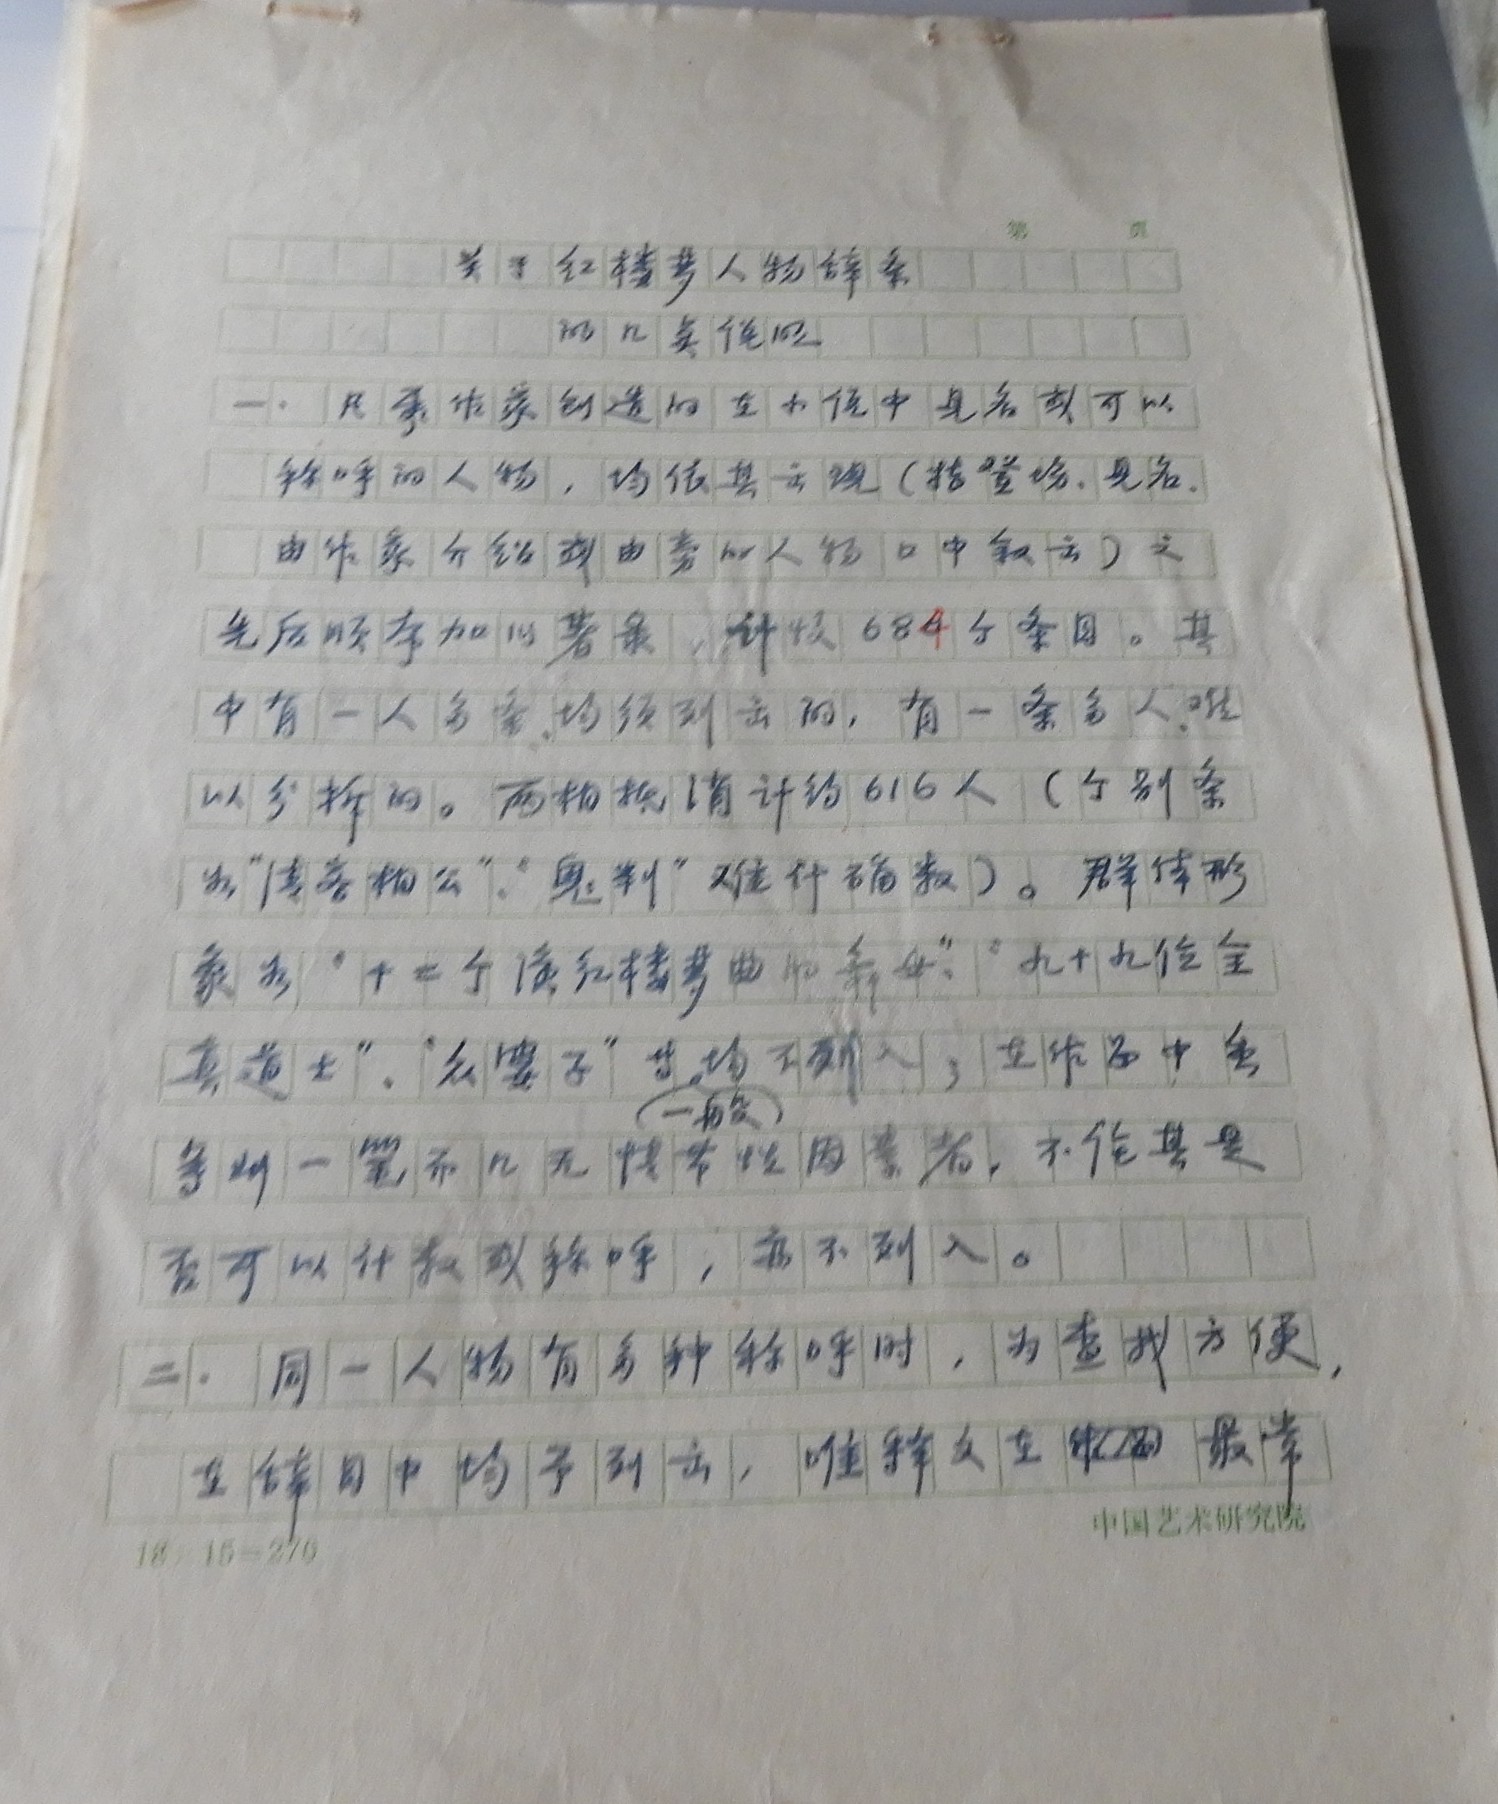 第 页
关于红楼梦人物辞条
的几点说明
一. 凡属作家创造的在小说中具名或可以
称呼的人物，均依其出现（指登场、见名、
由作家介绍或由旁的人物口中叙出）之
先后顺序加以著录，计收684个条目。其
中有一人多条、均须列出的，有一条多人、难
以分拆的。两相抵消计约616人（个别条
如“清客相公”、“鬼判”难计确数）。群体形
象如“十二个演红楼梦曲的舞女”、“九十九位全
真道士”、“众婆子”等，均不列入；在作品中
一笔而几无情节性因素者，不论其是
（一般）
否可以计数或称呼，亦不列入。
二. 同一人物有多种称呼时，为查找方便，
在辞目中均予列出，唯释文在 最常
18×15=270
中国艺术研究院